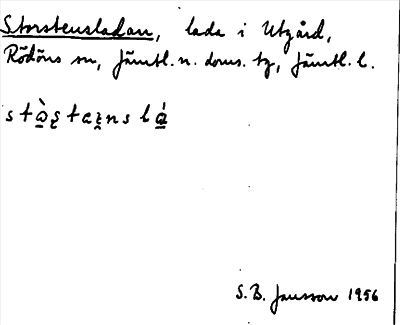 Storstensladan, lada i Utgård,
Rödöns sn, Jämtl. n. doms. tg, Jämtl. l.
S.B. Jansson 1956